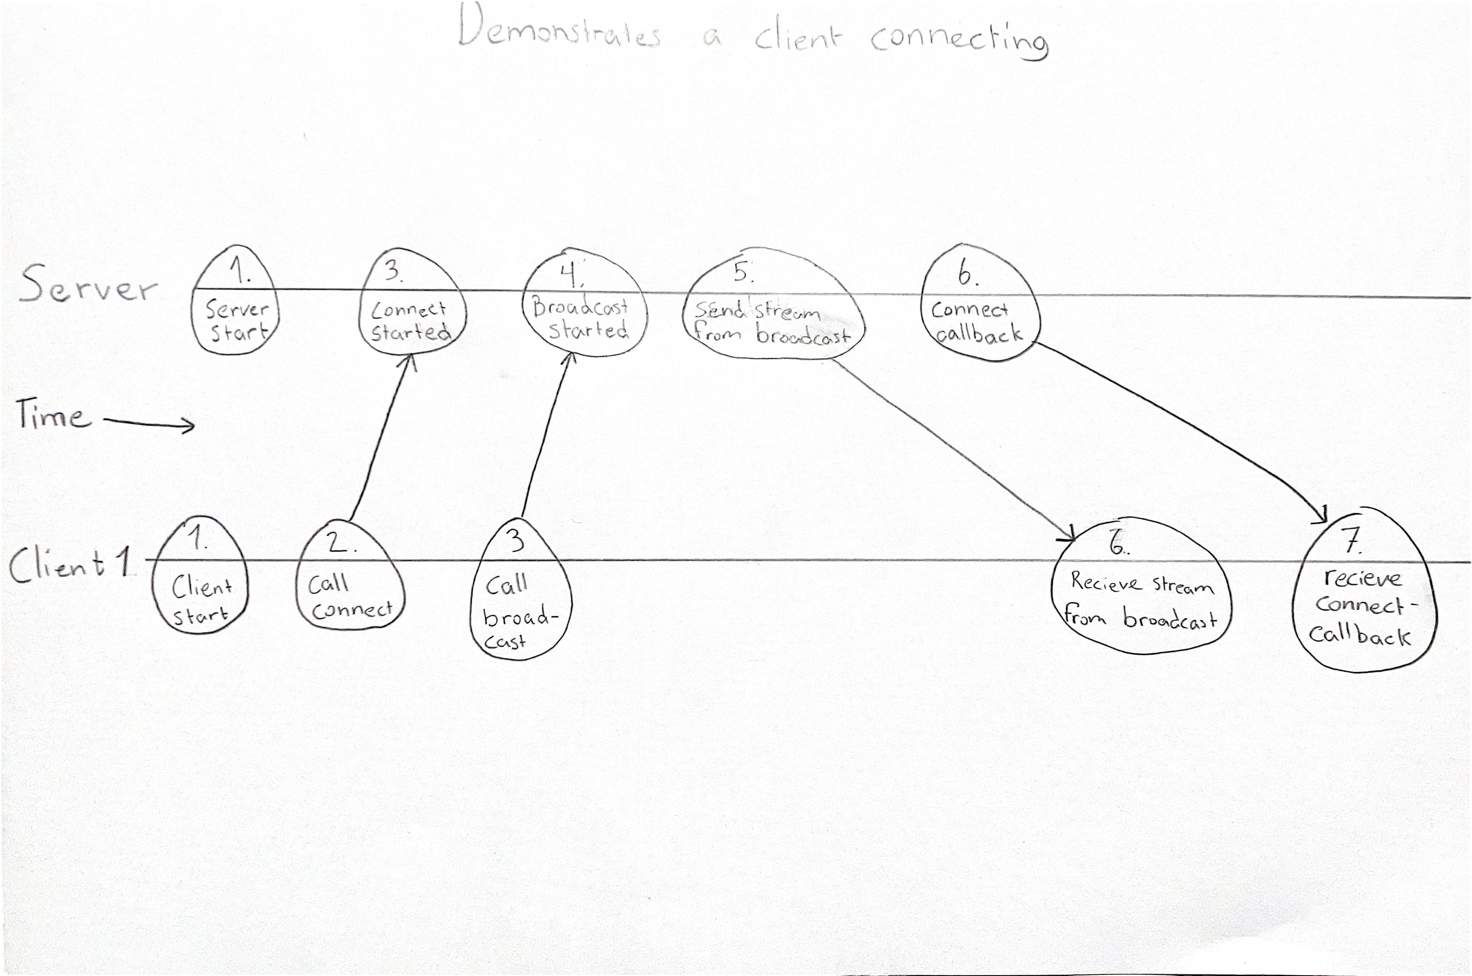 Demonstrates a client connecting
Server
1.
Server
Start
3.
Connect
started
4.
Broadcast
started
5.
Send stream
from broadcast
6.
Connect
callback
Time
Client 1
1.
Client
start
2.
Call
connect
3
Call
broad-
cast
6.
Recieve stream
from broadcast
7.
recieve
connect-
callback